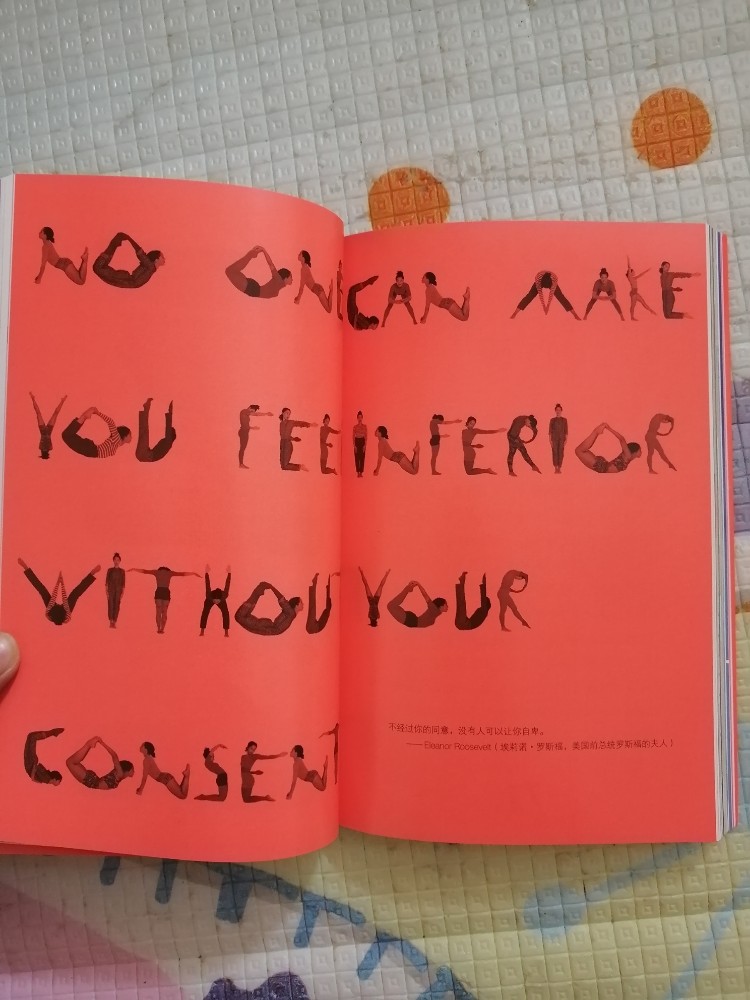 NO ONE CAN MAKE
YOU FEE INFERIOR
WITHOUT YOUR
CONSENT
不经过你的同意，没有人可以让你自卑。
——Eleanor Roosevelt（埃莉诺·罗斯福，美国前总统罗斯福的夫人）